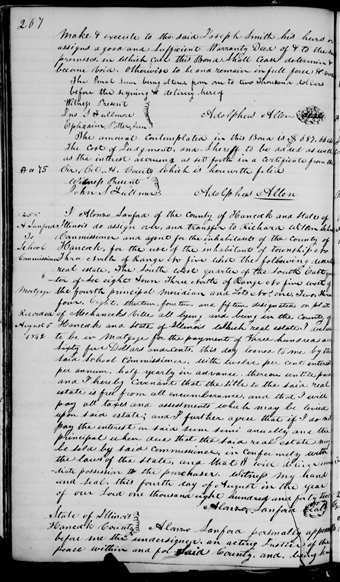 267
Make & execute to the said Joseph Smith his heirs or
assigns a good and Sufficient Warranty Deed of & to the
premises, in which case this Bond Shall Cease determine &
become Void. Otherwise to be and remain in full force &
The Penal Sum being from one to two Thousand Dollars
before the signing & delivery hereof
Witness Present
Jno. S. Fullmer
Adolphus Allen Seal
Ephraim Potter
The amount Contemplated in this Bond is $ 687.
The Cost of Judgment, and Sheriff to be added as well
as the interest accruing as set forth in a Certificate from the
Co. H. County which is herewith filed
Witness Present
John S. Fullmer
Adolphus Allen
A Sanford
To
School
Commissioner
Mortgage
Recorded
August 5
1842
I Alonzo Sanford of the County of Hancock and State of
Illinois do assign over and transfer to Richard Wilton
Commissioner and agent for the inhabitants of the County of
Hancock, for the use of the inhabitants of township
Three North of Range No five West the following
real estate. The South West quarter of the South East
of Six eight Town Three North of Range No five West of
the fourth principal meridian and Lots No one, two, three
four, eight, thirteen, fourteen, and fifteen,
of Mechanicks Ville all lying and being in the County of
Hancock and State of Illinois which real estate I
to be in Mortgage for the payment of Three hundred and
fifty five Dollars and cents, this day loaned to me by the
said School Commissioner, with twelve per cent interest
per annum, half yearly in advance thereon until paid
and I hereby Covenant that the title to the said real
estate is free from all encumberance, and that I will
pay all taxes and assessments which may be levied
upon said estate; and I further agree that if I do not
pay the interest on said sum semi annually and the
principal when due that the said real estate may
be sold by said Commissioner, in Conformity with
the laws of the state, and that I will deliver
possession to the purchaser. Witness my hand
and seal, this fourth day of August in the year
of our Lord one thousand eight hundred and forty two
Alonzo Sanford Seal
State of Illinois
Hancock County
Alonzo Sanford personally appeared
before me the undersigned, an acting Justice of the
peace within and for said County, and being